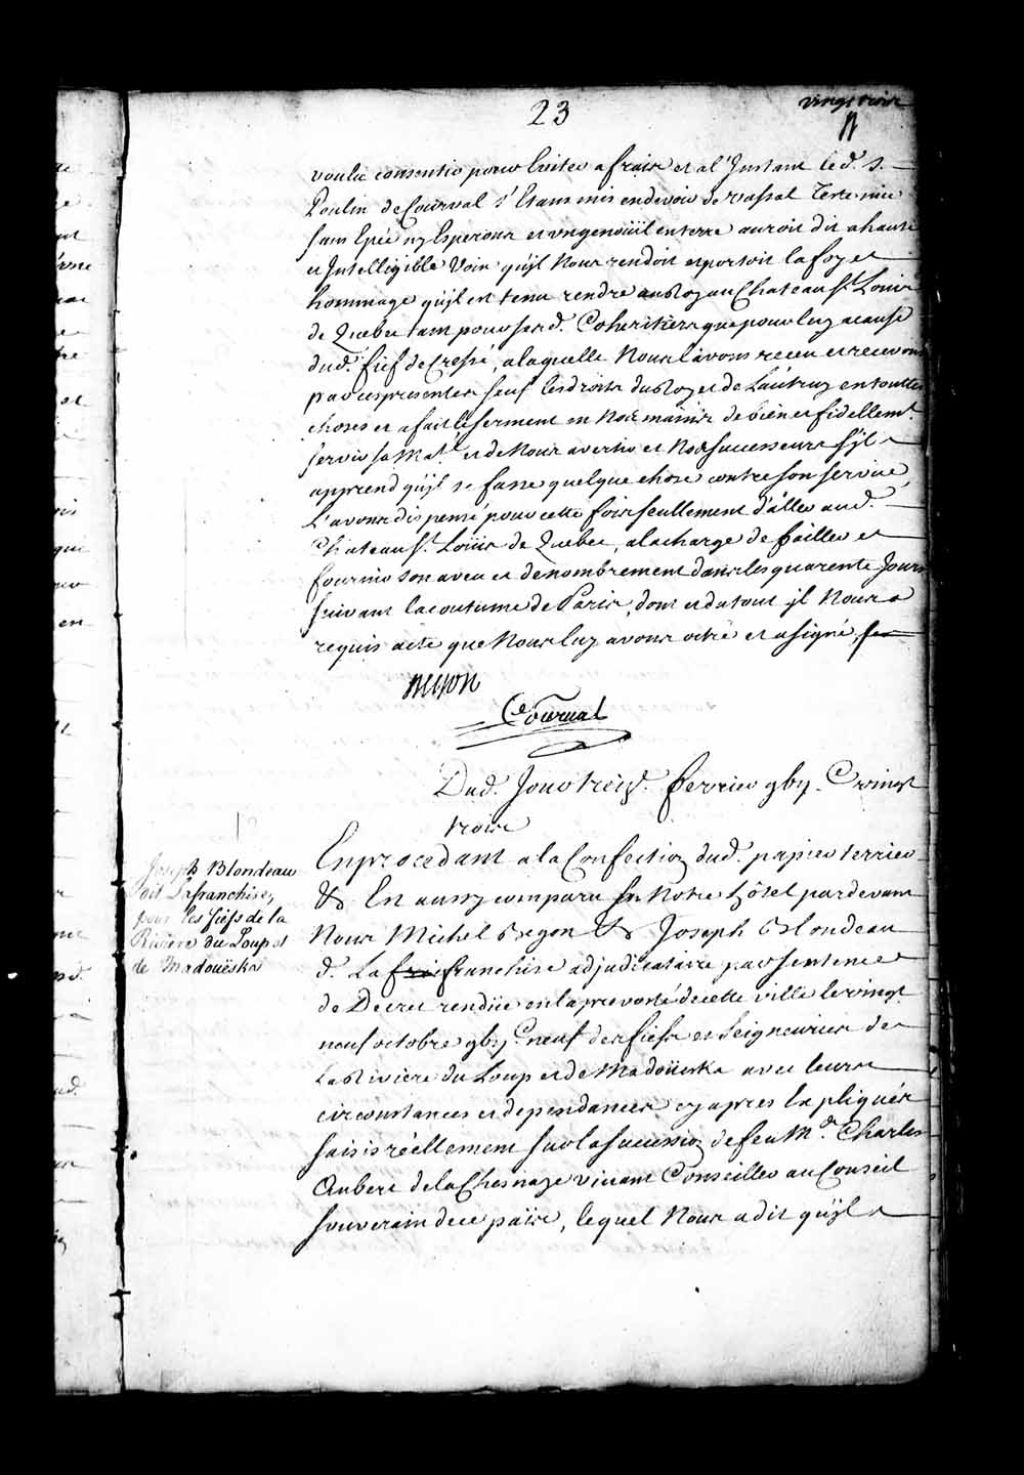 23
vingt trois
voulu consentir pour Eviter a frais et al'Instant led. S.
Poulin de Courval s'Estant mis en devoir de vassal teste nüe
sans Epée ny Esperons et ungenoüil enterre auroit dit ahaute
et Intelligible Voix qu'jl Nous rendoit et portoit la foy et
hommage qu'jl est tenu rendre au Roy au Chateau St. Louis
de Quebec tant pour ses d. Coheritiers que pour luy acause
dud. fief de Cressé, alaquelle Nous l'avons receu et recevons
par ces presentes sauf les droits du Roy et de L'autruy en toutes
choses et a fait le serment en Nos mains de bien et fidellemt.
servir sa Maté. et de Nous avertir et Nos successeurs s'jl
apprend qu'jl se fasse quelque chose contre son service
L'avons dispensé pour cette fois seullement d'aller aud.
Chateau St. Loüis de Quebec, alacharge de bailler et
fournir son aveu et denombrement dans les quarente Jours
suivant lacoutume de Paris, dont et du tout jl Nous a
requis acte que Nous luy avons octré et a signé
Courval
Dud. Jour treize. fevrier gbij. C vingt
trois
Joseph Blondeau
dit Lafranchise,
pour les fiefs de la
Riviere du Loup et
de Madoüeska
En procedant a la Confection dud. papier terrier
& Est aussy comparu En Notre hôtel pardevant
Nous Michel Begon & Joseph Blondeau
d. La franchise adjudicataire par sentence
de Decret rendüe en la prevosté de cette ville le vingt
neuf octobre gbij. C neuf des fiefs et seigneuries de
La Riviere du Loup et de Madoüeska avec leurs
circonstances et dependances cy apres Expliquées
saisis réellement sur la succession de feu Mr. Charles
Aubert de la Chesnaye vivant Conseiller au Conseil
souverain de ce païs, lequel Nous a dit qu'jl